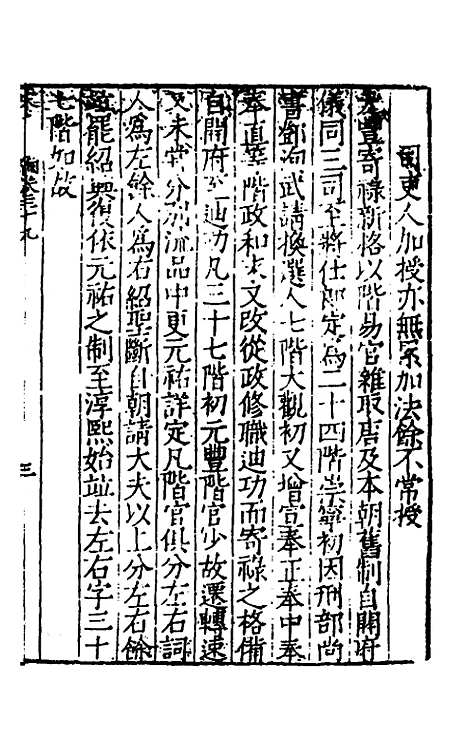 國吏人加授亦無累加法餘不常授
元豐寄祿新格以階易官雜取唐及本朝舊制自開府
儀同三司至將仕郎定爲二十四階崇寧初因刑部尚
書鄧洵武請換選人七階大觀初又增宣奉正奉中奉
奉直等階政和末又改從政修職迪功而寄祿之格備
自開府至迪功凡三十七階初元豐階官少故遷轉速
又未嘗分別流品中更元祐詳定凡階官俱分左右詞
人爲左餘人爲右紹聖斷自朝請大夫以上分左右餘
並罷紹興復依元祐之制至淳熙始並去左右字三十
七階如故
三十九
三